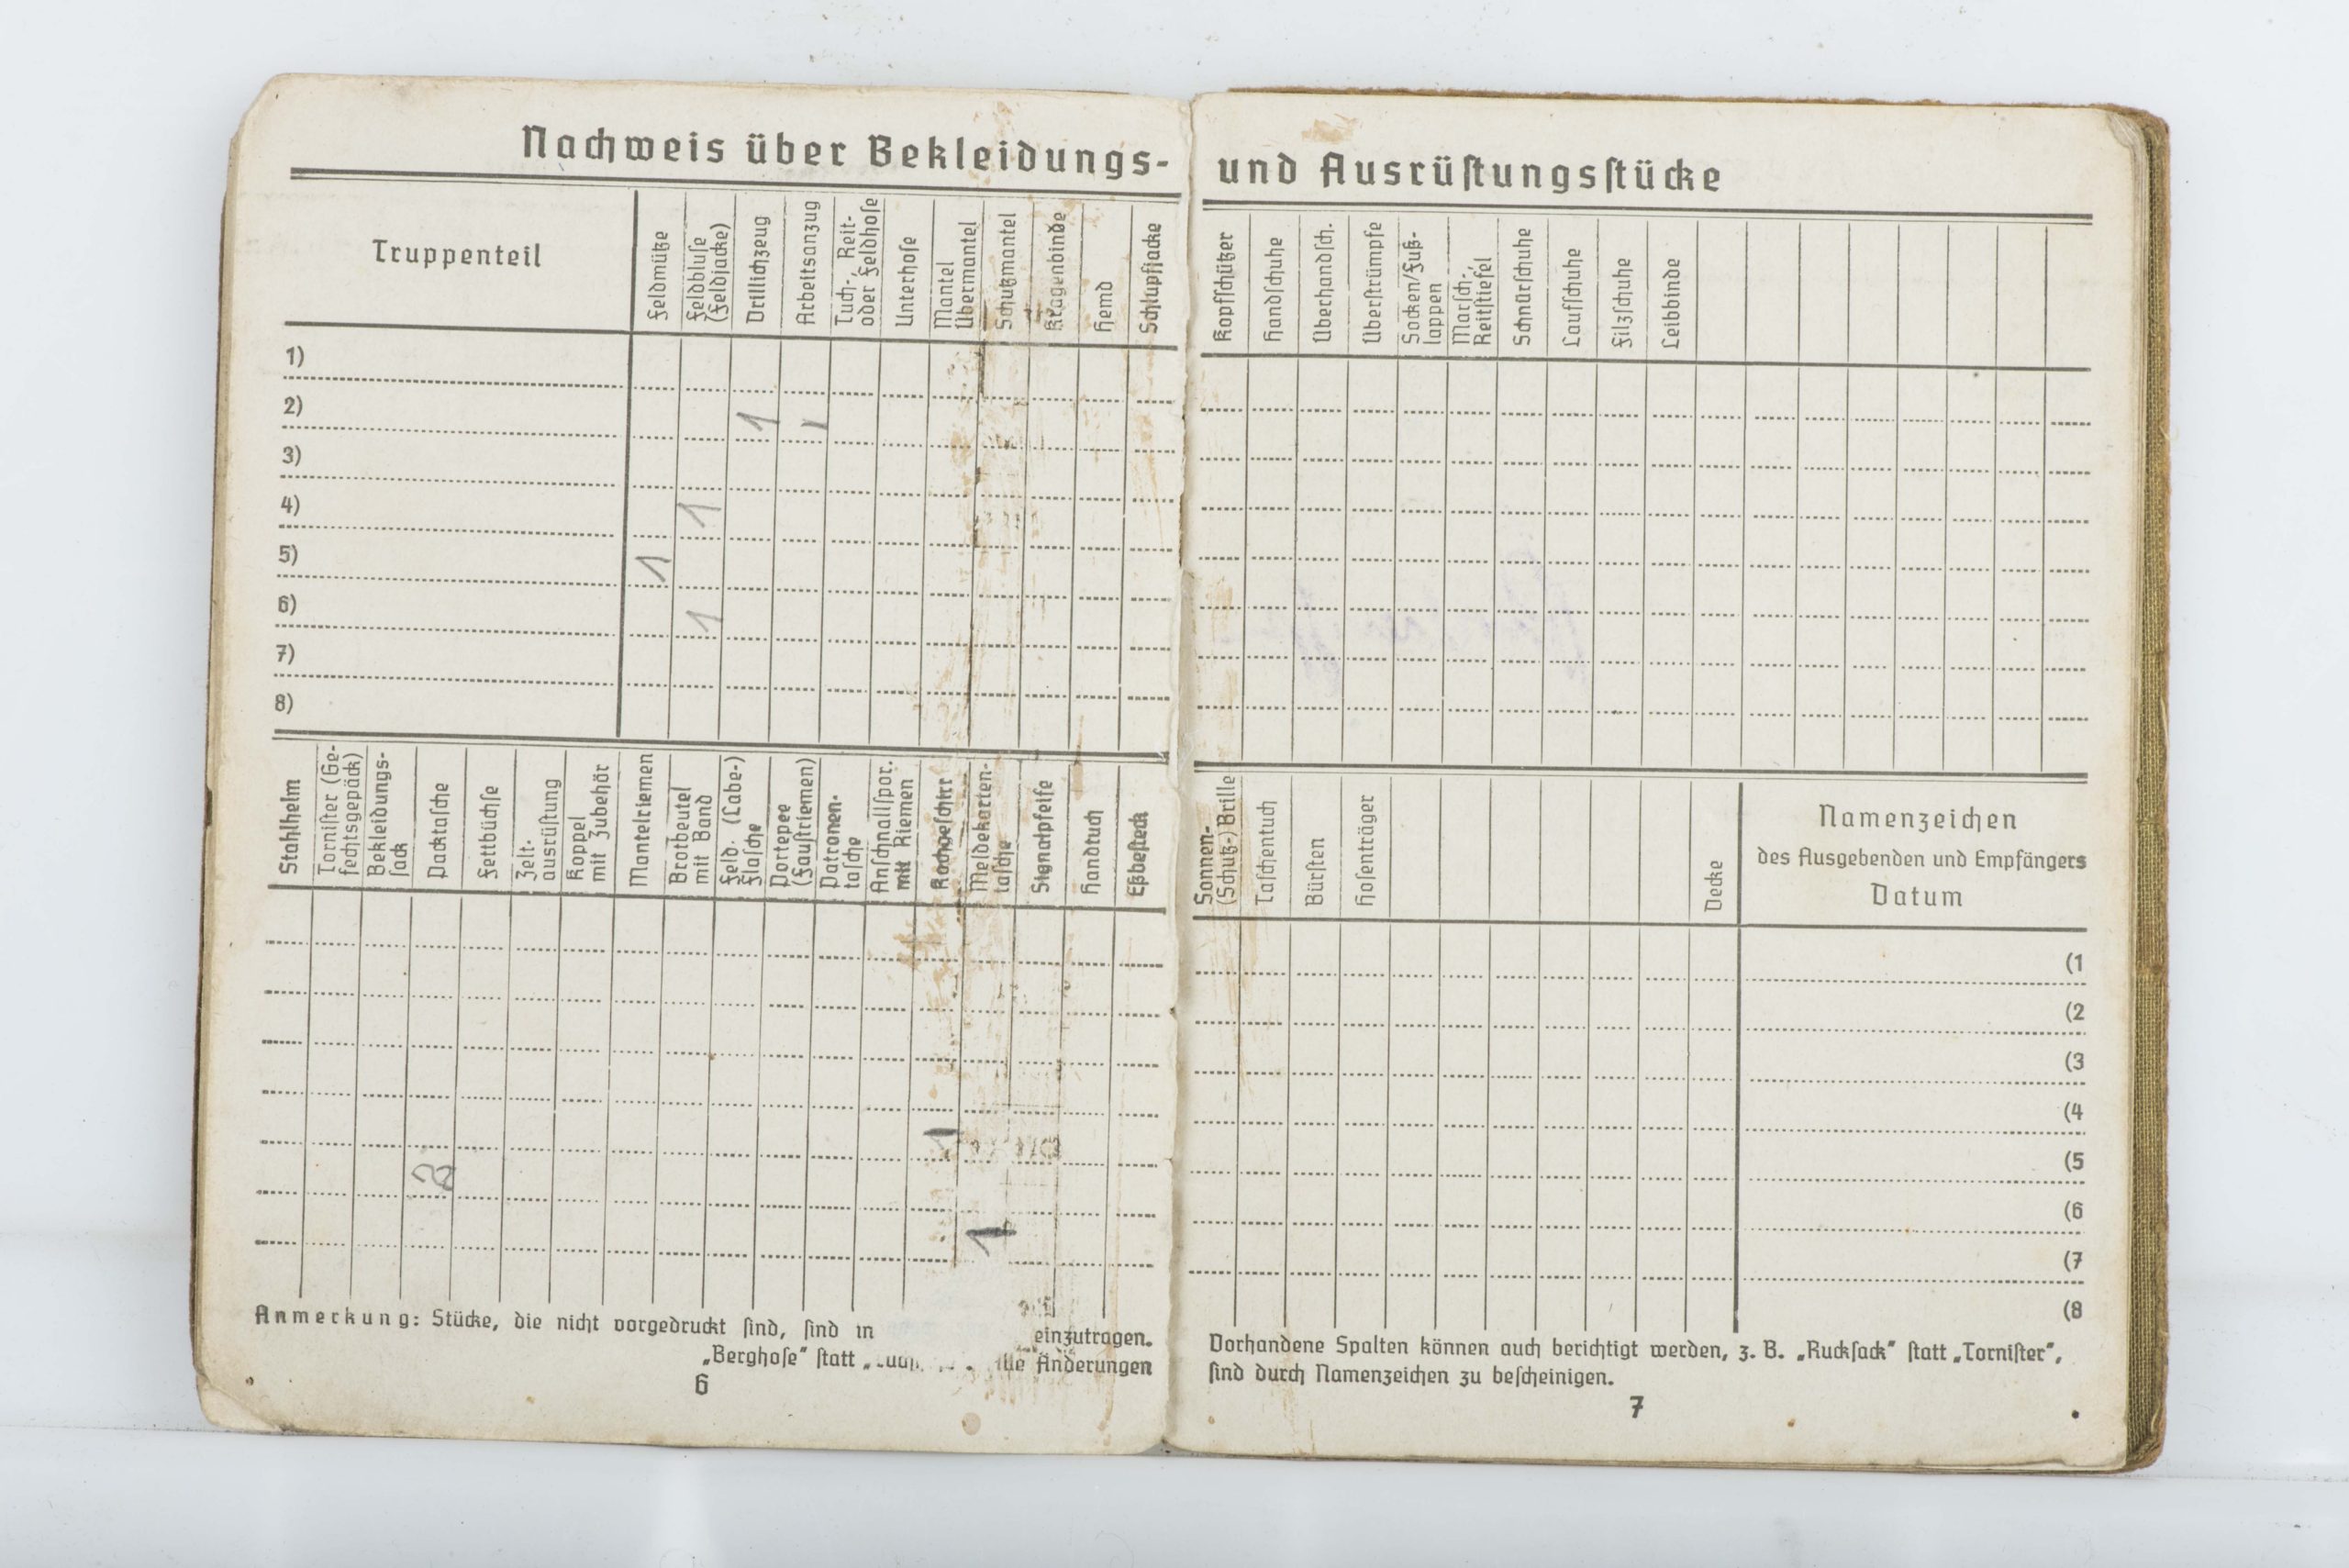 Nachweis über Bekleidungs- und Ausrüstungsstücke
Truppenteil
Feldmütze
Feldbluse
(Feldjacke)
Drillichzeug
Arbeitsanzug
Tuch-, Reit-
oder Feldhose
Unterhose
Mantel
Übermantel
Schutzmantel
Kragenbinde
Hemd
Schlupfjacke
Kopfschützer
Handschuhe
Überhandsch.
Überstrümpfe
Socken/Fuß-
lappen
Marsch-,
Reitstiefel
Schnürschuhe
Laufschuhe
Filzschuhe
Leibbinde
1)
2) 1 1
3)
4) 1
5) 1
6) 1
7)
8)
Stahlhelm
Tornister (Ge-
fechtsgepäck)
Bekleidungs-
sack
Packtasche
Fettbüchse
Zelt-
ausrüstung
Koppel
mit Zubehör
Mantelriemen
Brotbeutel
mit Band
Feld- (Labe-)
Flasche
Portepee
(Faustriemen)
Patronen-
tasche
Anschnallspor.
mit Riemen
Kochgeschirr
Meldekarten-
tasche
Signalpfeife
Handtuch
Eßbesteck
Sonnen-
(Schutz-) Brille
Taschentuch
Bürsten
Hosenträger
Decke
Namenzeichen
des Ausgebenden und Empfängers
Datum
(1
(2
(3
(4
1
(5
2
(6
1
(7
(8
Anmerkung: Stücke, die nicht vorgedruckt sind, sind in einzutragen.
„Berghose“ statt Änderungen
6
Vorhandene Spalten können auch berichtigt werden, z. B. „Rucksack“ statt „Tornister“,
sind durch Namenzeichen zu bescheinigen.
7